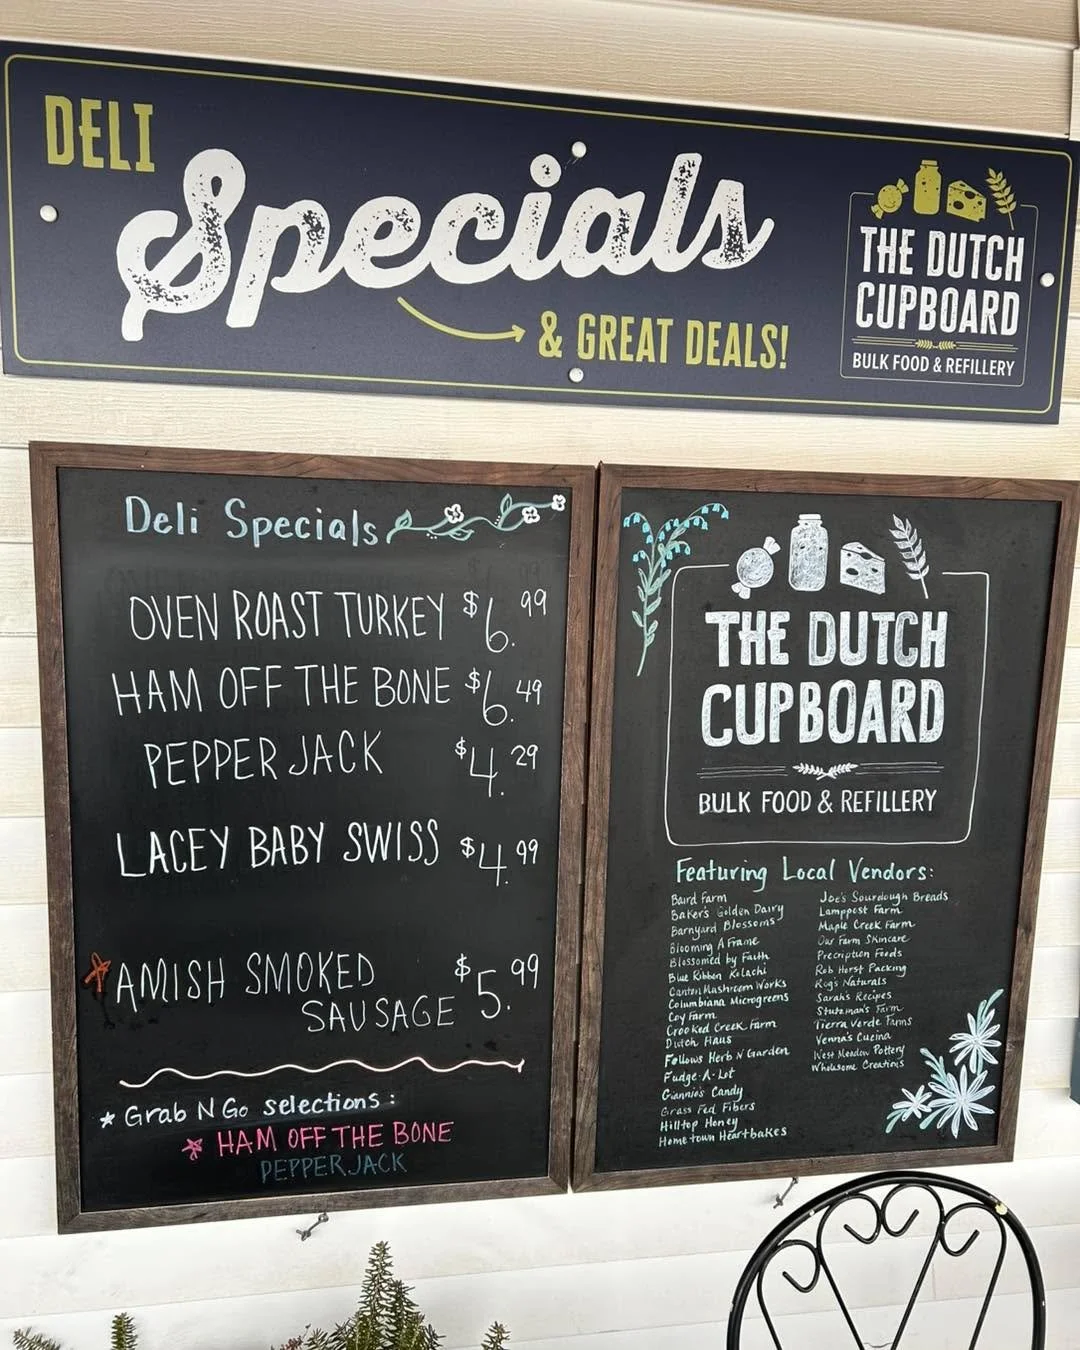 DELI
Specials
& GREAT DEALS!
THE DUTCH
CUPBOARD
BULK FOOD & REFILLERY
Deli Specials
OVEN ROAST TURKEY $6.99
HAM OFF THE BONE $6.49
PEPPER JACK $4.29
LACEY BABY SWISS $4.99
AMISH SMOKED
SAUSAGE $5.99
Grab N Go selections:
HAM OFF THE BONE
PEPPER JACK
THE DUTCH
CUPBOARD
BULK FOOD & REFILLERY
Featuring Local Vendors:
Baird Farm
Baker's Golden Dairy
Barnyard Blossoms
Blooming A Frame
Blossomed by Faith
Blue Ribbon Kolachi
Canton Mushroom Works
Columbiana Microgreens
Coy Farm
Crooked Creek Farm
Dutch Haus
Fellows Herb N Garden
Fudge-A-Lot
Giannios Candy
Grass Fed Fibers
Hilltop Honey
Hometown Heartbakes
Joe's Sourdough Breads
Lamppost Farm
Maple Creek Farm
Our Farm Skincare
Precription Foods
Rob Horst Packing
Rug's Naturals
Sarah's Recipes
Stutzman's Farm
Tierra Verde Farms
Venna's Cucina
West Meadow Pottery
Wholesome Creations